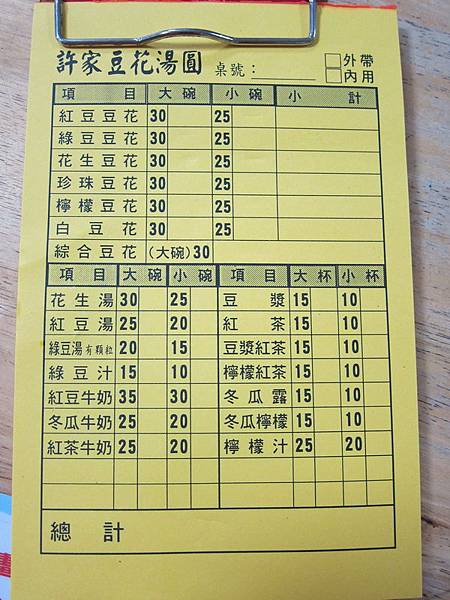 許家豆花湯圓 桌號：______ □外帶
□內用
項目 大碗 小碗 小計
紅豆豆花 30 25
綠豆豆花 30 25
花生豆花 30 25
珍珠豆花 30 25
檸檬豆花 30 25
白豆花 30 25
綜合豆花 (大碗)30
項目 大碗 小碗 項目 大杯 小杯
花生湯 30 25 豆漿 15 10
紅豆湯 25 20 紅茶 15 10
綠豆湯有顆粒 20 15 豆漿紅茶 15 10
綠豆汁 15 10 檸檬紅茶 15 10
紅豆牛奶 35 30 冬瓜露 15 10
冬瓜牛奶 25 20 冬瓜檸檬 15 10
紅茶牛奶 25 20 檸檬汁 25 20
總計